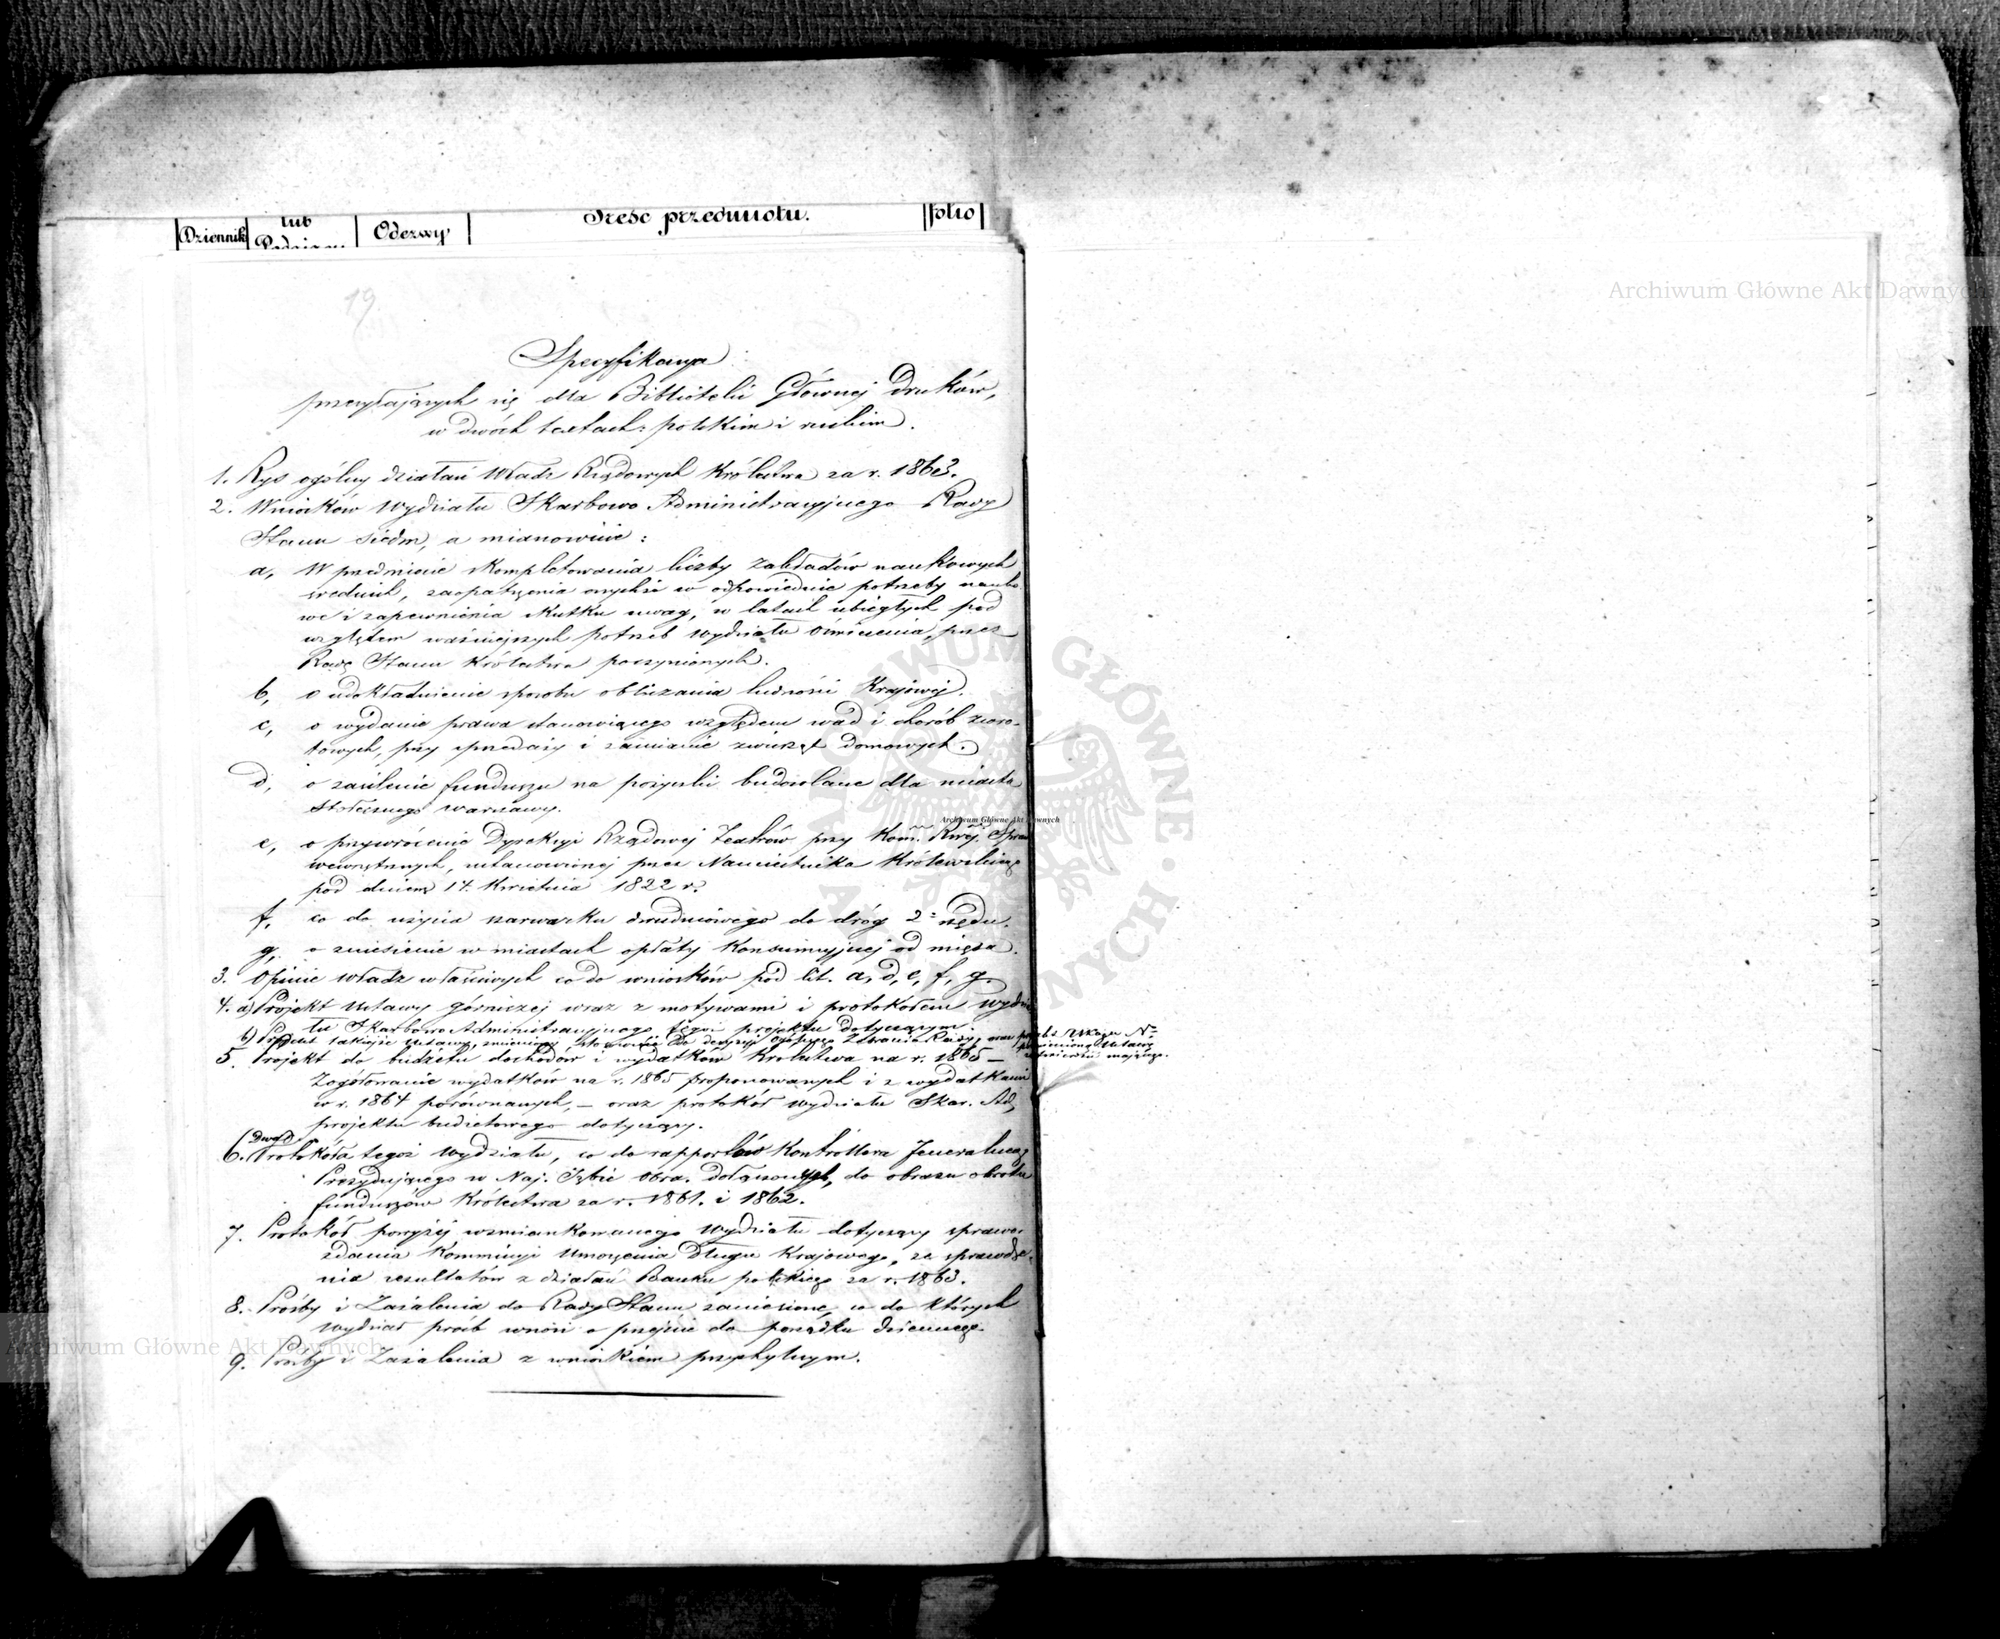 Dziennik
lub
Odezwy
Treść przedmiotu.
folio
19.
Specyfikacya
przesyłających się dla Biblioteki Głównej Druków,
w dwóch textach: polskim i ruskim.
1. Rys ogólny działań Władz Rządowych Królestwa za r. 1863.
2. Wniosków Wydziału Skarbowo Administracyjnego Rady
Stanu siedm, a mianowicie:
a, W przedmiocie skompletowania liczby zakładów naukowych
średnich, zaopatrzenia onychże w odpowiednie potrzeby nauko
we i zapewnienia skutku uwag, w latach ubiegłych pod
względem ważniejszych potrzeb wydziału Oświecenia, przez
Radę Stanu Królestwa poczynionych.
b, o udokładnienie sposobu obliczania ludności Krajowej.
c, o wydanie prawa stanowiącego względem wad i chorób zwro-
towych, przy sprzedaży i zamianie zwierząt domowych.
d, o zasilenie funduszu na pożyczki budowlane dla miasta
Stołecznego Warszawy.
e, o przywrócenie Dyrekcyi Rządowej Teatrów przy Kom. Rząd. Spraw
wewnętrznych, ustanowionej przez Namiestnika Królewskiego
pod dniem 17. Kwietnia 1822 r.
f, co do użycia szarwarku dwudniowego do dróg 2º rzędu.
g, o zniesienie w miastach opłaty Konsumcyjnej od mięsa.
3. Opinie władz właściwych co do wniosków pod lit. a, d, e, f, g.
4. a) Projekt Ustawy górniczej wraz z motywami i protokołem Wydzia
łu Skarbowo Administracyjnego tegoż projektu dotyczącym.
b) Projekt takiejże Ustawy, zmieniony stosownie do decyzyi Ogólnego Zebrania Rady, oraz
5. Projekt do budżetu dochodów i wydatków Królestwa na r. 1865 –
Zogółowanie wydatków na r. 1865 proponowanych i z wydatkami
w r. 1864 porównanych, – oraz protokół Wydziału Skar. Ad,
projektu budżetowego dotyczący.
Dwa
6. Protokóła tegoż Wydziału, co do rapportów Kontrollera Jeneralnego
Prezydującego w Naj. Izbie Obra. dołączonych, do obrazu obrotu
funduszów Królestwa za r. 1861. i 1862.
7. Protokół powyżej wzmiankowanego Wydziału dotyczący sprawo-
zdania Kommissyi Umorzenia Długu Krajowego, ze sprawdze-
nia rezultatów z działań Banku polskiego za r. 1863.
8. Prośby i Zażalenia do Rady Stanu zaniesione, co do których
Wydział próśb wnosi o przejście do porządku dziennego.
9. Prośby i Zażalenia z wnioskiem przychylnym.
Archiwum Główne Akt Dawnych
Archiwum Główne Akt Dawnych
Archiwum Główne Akt Dawnych